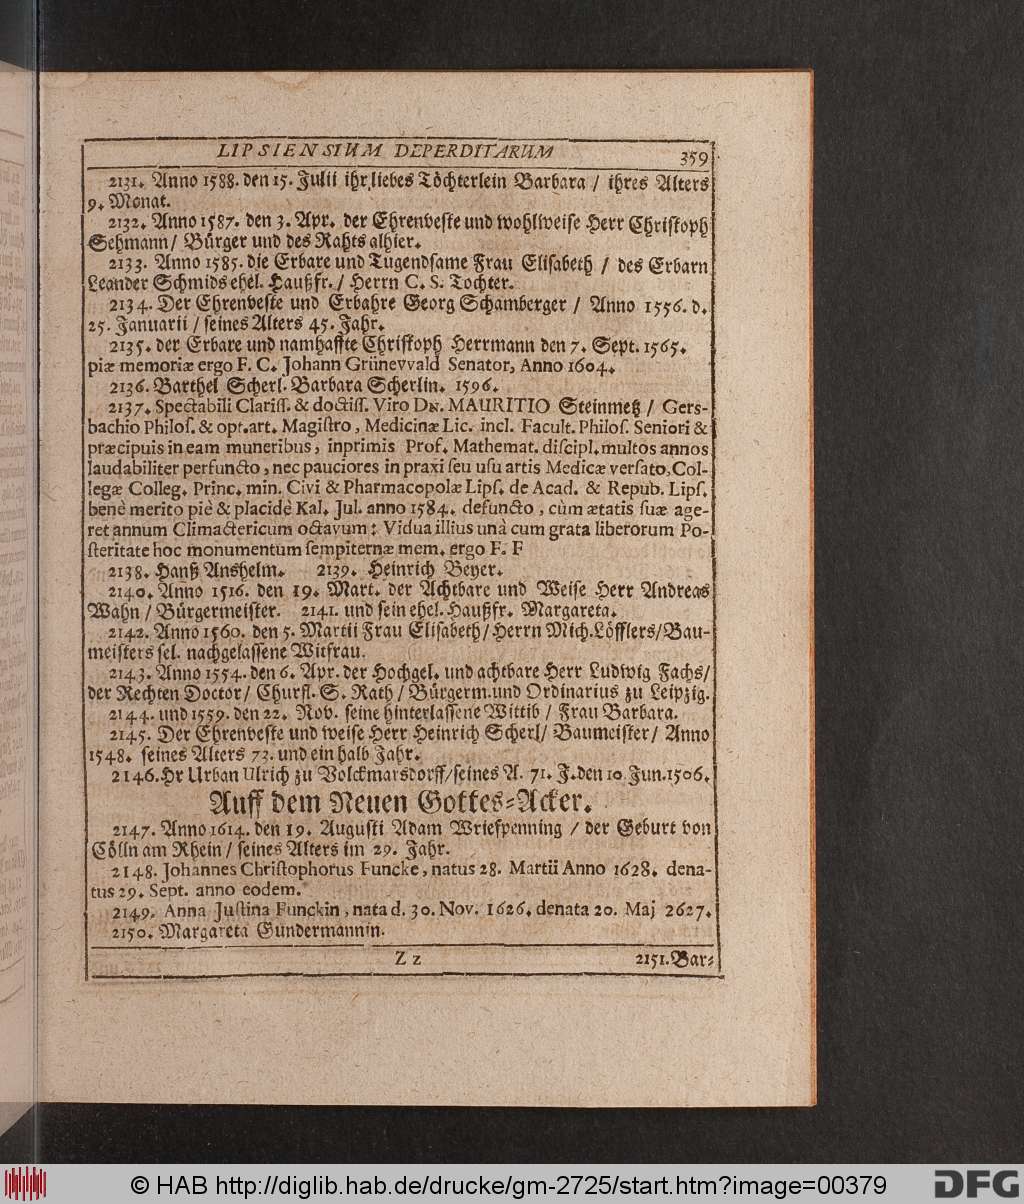 LIPSIENSIUM DEPERDITARUM 359
2131. Anno 1588. den 15. Julii ihr liebes Töchterlein Barbara / ihres Alters
9. Monat.
2132. Anno 1587. den 3. Apr. der Ehrenveste und wohlweise Herr Christoph
Sehmann / Bürger und des Rahts alhier.
2133. Anno 1585. die Erbare und Tugendsame Frau Elisabeth / des Erbarn
Leander Schmids ehel. Haußfr. / Herrn C. S. Tochter.
2134. Der Ehrenveste und Erbahre Georg Schamberger / Anno 1556. d.
25. Januarii / seines Alters 45. Jahr.
2135. der Erbare und namhaffte Christoph Herrmann den 7. Sept. 1565.
piæ memoriæ ergo F. C. Johann Grünevvald Senator, Anno 1604.
2136. Barthel Scherl. Barbara Scherlin. 1596.
2137. Spectabili Clariſſ. & doctiſſ. Viro Dn. MAURITIO Steinmetz / Gers-
bachio Philoſ. & opt. art. Magiſtro, Medicinæ Lic. incl. Facult. Philoſ. Seniori &
præcipuis in eam muneribus, inprimis Prof. Mathemat. diſcipl. multos annos
laudabiliter perfuncto, nec pauciores in praxi ſeu uſu artis Medicæ verſato, Col-
legæ Colleg. Princ. min. Civi & Pharmacopolæ Lipſ. de Acad. & Repub. Lipſ.
benè merito piè & placidè Kal. Jul. anno 1584. defuncto, cùm ætatis ſuæ age-
ret annum Climactericum octavum: Vidua illius unà cum grata liberorum Po-
ſteritate hoc monumentum ſempiternæ mem. ergo F. F
2138. Hanß Anshelm. 2139. Heinrich Beyer.
2140. Anno 1516. den 19. Mart. der Achtbare und Weise Herr Andreas
Wahn / Bürgermeister. 2141. und sein ehel. Haußfr. Margareta.
2142. Anno 1560. den 5. Martii Frau Elisabeth / Herrn Mich. Löfflers / Bau-
meisters sel. nachgelassene Witfrau.
2143. Anno 1554. den 6. Apr. der Hochgel. und achtbare Herr Ludwig Fachs /
der Rechten Doctor / Churfl. S. Rath / Bürgerm. und Ordinarius zu Leipzig.
2144. und 1559. den 22. Nov. seine hinterlassene Wittib / Frau Barbara.
2145. Der Ehrenveste und weise Herr Heinrich Scherl / Baumeister / Anno
1548. seines Alters 73. und ein halb Jahr.
2146. Hr Urban Ulrich zu Volckmarsdorff / seines A. 71. J. den 10 Jun. 1506.
Auff dem Neuen Gottes-Acker.
2147. Anno 1614. den 19. Augusti Adam Wriefpenning / der Geburt von
Cölln am Rhein / seines Alters im 29. Jahr.
2148. Johannes Chriſtophorus Funcke, natus 28. Martii Anno 1628. dena-
tus 29. Sept. anno eodem.
2149. Anna Juſtina Funckin, nata d. 30. Nov. 1626. denata 20. Maj 2627.
2150. Margareta Gündermannin.
Z z 2151. Bar-
© HAB http://diglib.hab.de/drucke/gm-2725/start.htm?image=00379
DFG